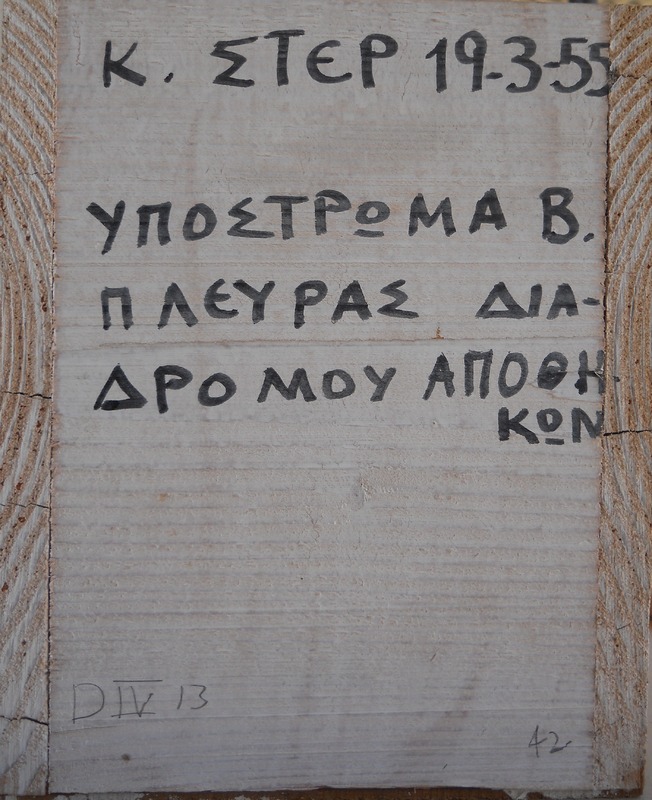 Κ. ΣΤΕΡ 19-3-55
ΥΠΟΣΤΡΩΜΑ Β.
ΠΛΕΥΡΑΣ ΔΙΑ-
ΔΡΟΜΟΥ ΑΠΟΘΗ-
ΚΩΝ
D IV 13
42